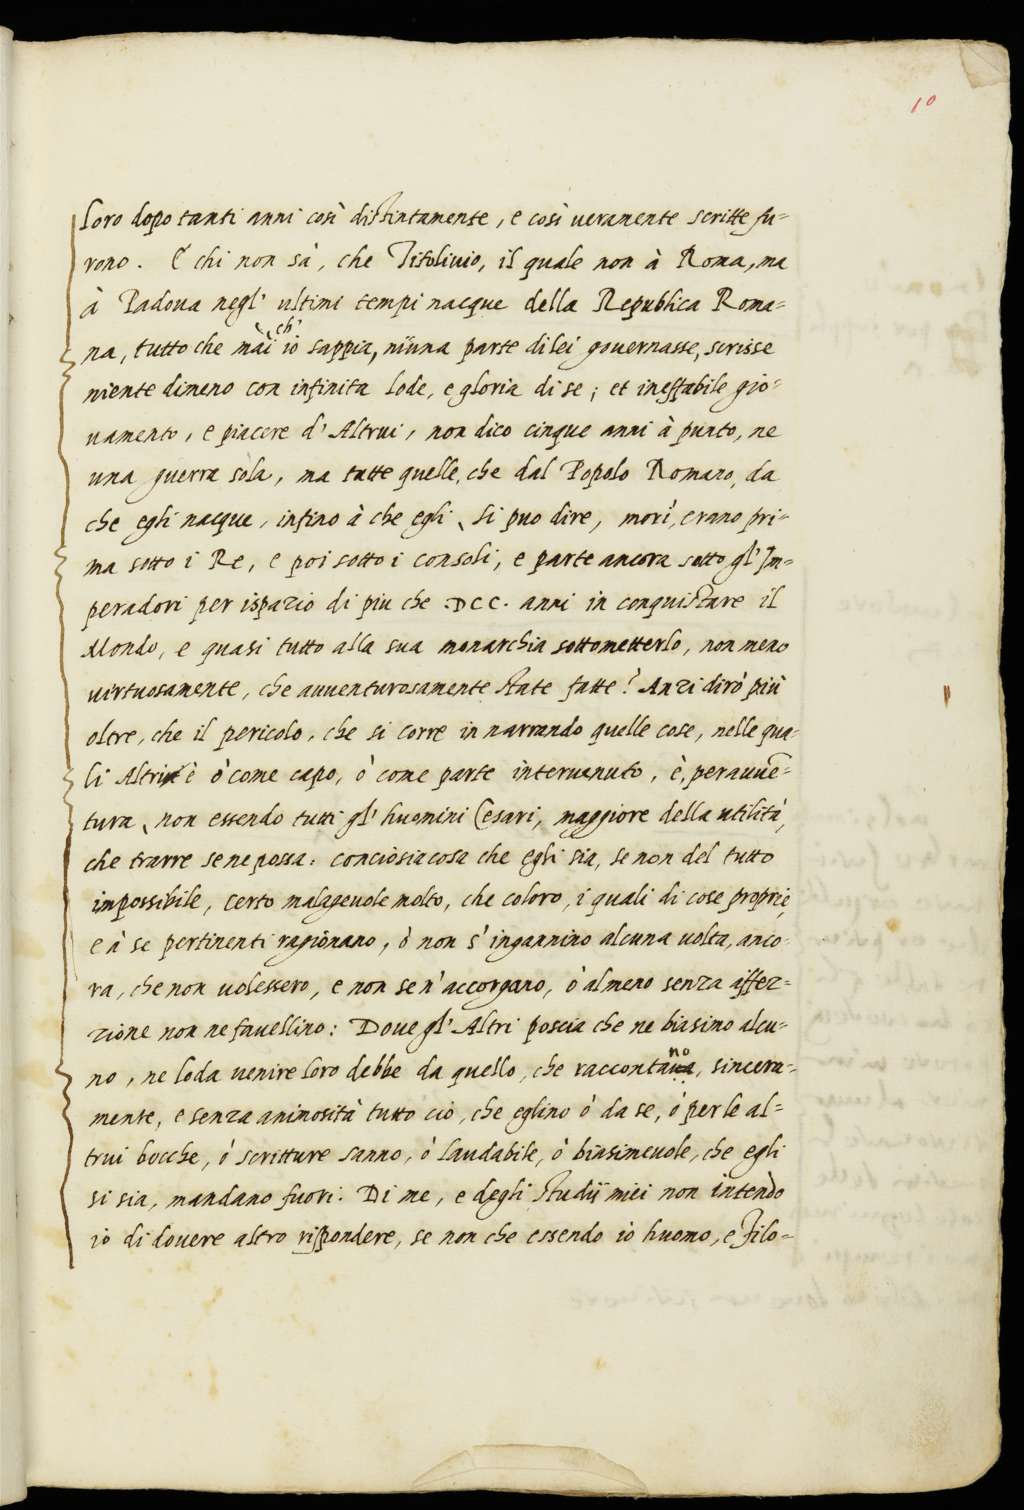 10
loro dopo tanti anni così distintamente, e così veramente scritte fu=
rono. E chi non sà, che Titolivio, il quale non à Roma, ma
à Padova negl' ultimi tempi nacque della Republica Roma=
na, tutto che mài ch' io sappia, niuna parte di lei governasse, scrisse
niente dimeno con infinita lode, e gloria di se; et ineffabile gio=
vamento, e piacere d' Altrui, non dico cinque anni à punto, ne
una guerra sola, ma tutte quelle, che dal Popolo Romano, da
che egli nacque, infino à che egli, si puo dire, morì, erano pri=
ma sotto i Re, e poi sotto i consoli, e parte ancora sotto gl' Im=
peradori per ispazio di piu che .DCC. anni in conquistare il
Mondo, e quasi tutto alla sua monarchia sottometterlo, non meno
virtuosamente, che avventurosamente state fatte? Anzi dirò più
oltre, che il pericolo, che si corre in narrando quelle cose, nelle qua=
li Altri è ò come capo, ò come parte intervenuto, è, peravvē=
tura, non essendo tutti gl' huomini Cesari, maggiore della utilità,
che trarre se ne possa: conciosiacosa che egli sia, se non del tutto
impossibile, certo malagevole molto, che coloro, i quali di cose proprie,
e à se pertinenti ragionano, ò non s' ingannino alcuna volta, anco=
ra, che non volessero, e non se n' accorgano, ò almeno senza affez=
zione non ne favellino: Dove gl' Altri poscia che ne biasimo alcu=
no, ne loda venire loro debbe da quello, che raccontano, sincera=
mente, e senza animosità tutto ciò, che eglino ò da se, ò per le al=
trui bocche, ò scritture sanno, ò laudabile, ò biasimevole, che egli
si sia, mandano fuori. Di me, e degli studij miei non intendo
io di dovere altro rispondere, se non che essendo io huomo, e Filo=